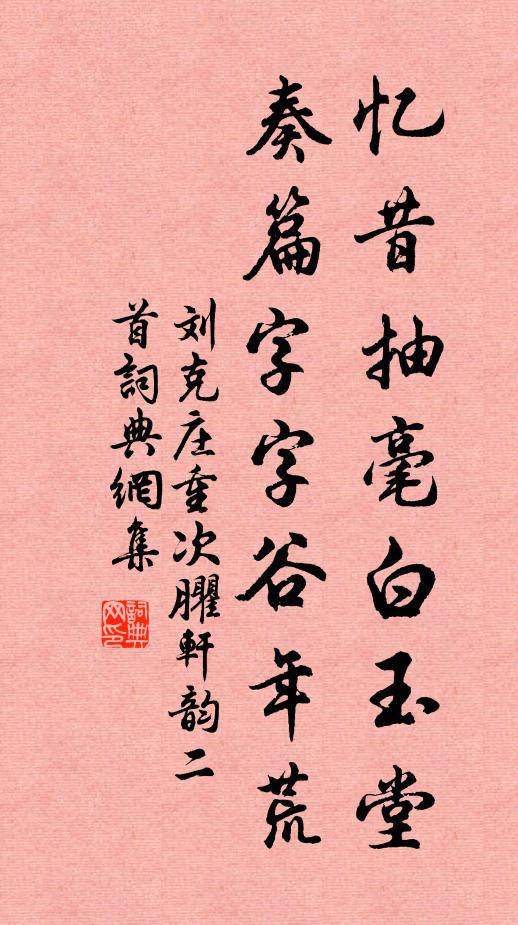 忆昔抽毫白玉堂
奏篇字字谷年荒
刘克庄重次臞軒韵二
首詞典網集
詞典网印